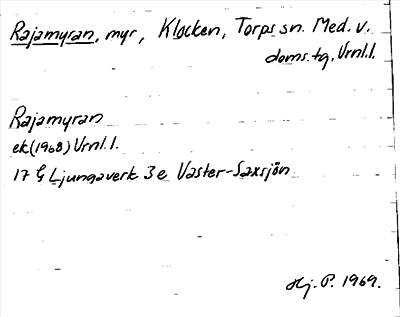 Rajamyran, myr, Klocken, Torps sn. Med. v.
doms. tg, Vrnl.l.
Rajamyran
ek(1968) Vrnl.l.
17 G Ljungaverk 3e Väster-Saxsjön
Hj. P. 1969.